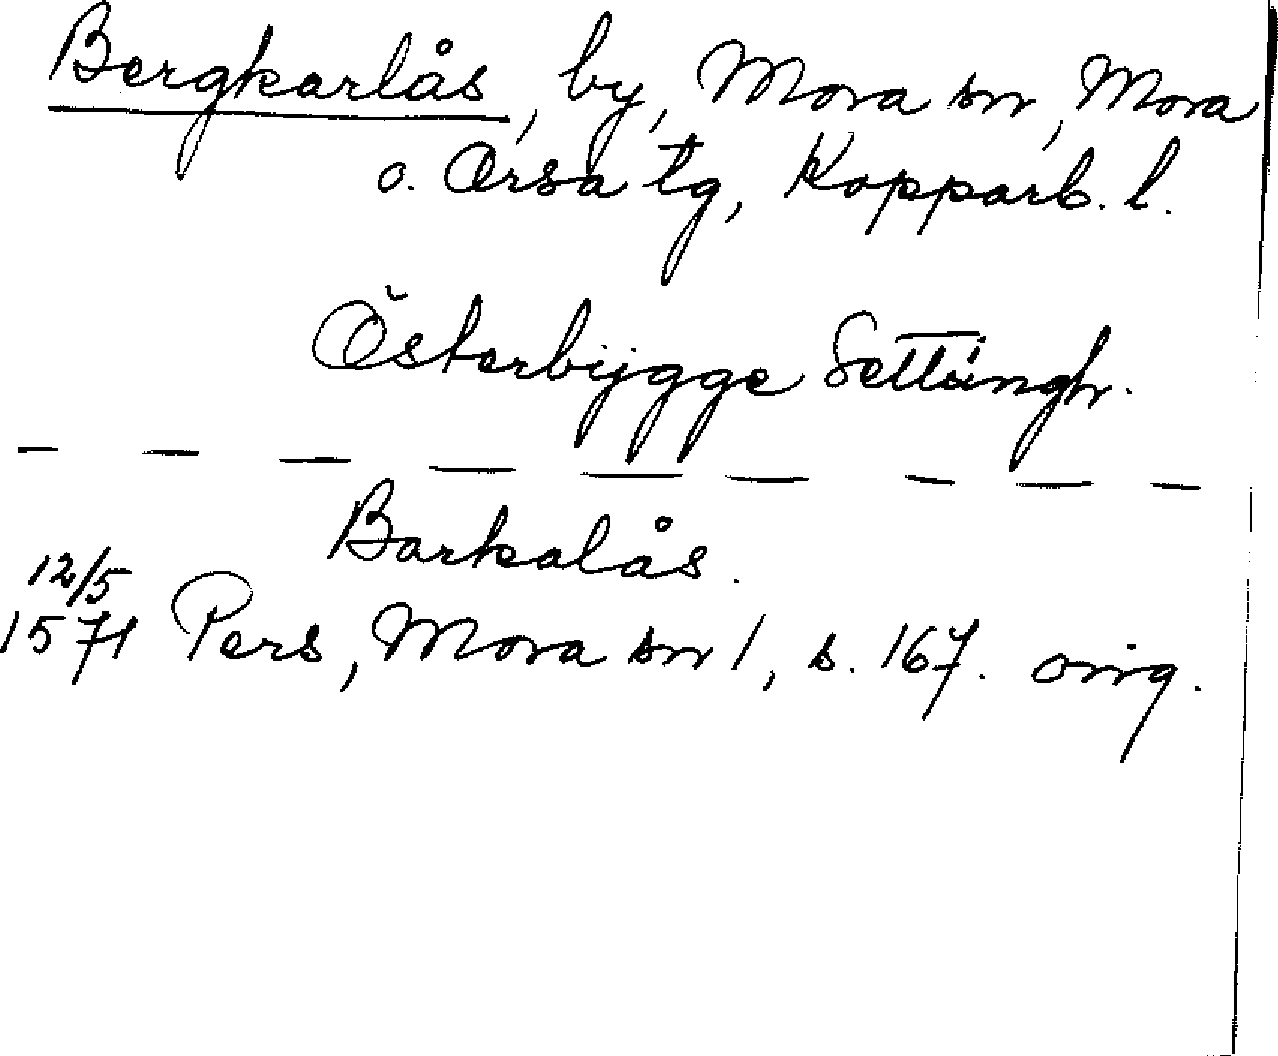 Bergkarlås, by, Mora sn, Mora
o. Orsa tg, Kopparb. l.
Österbygge Settungh.
Barkalås.
12/5
1571 Pers, Mora sn 1, s. 167. orig.